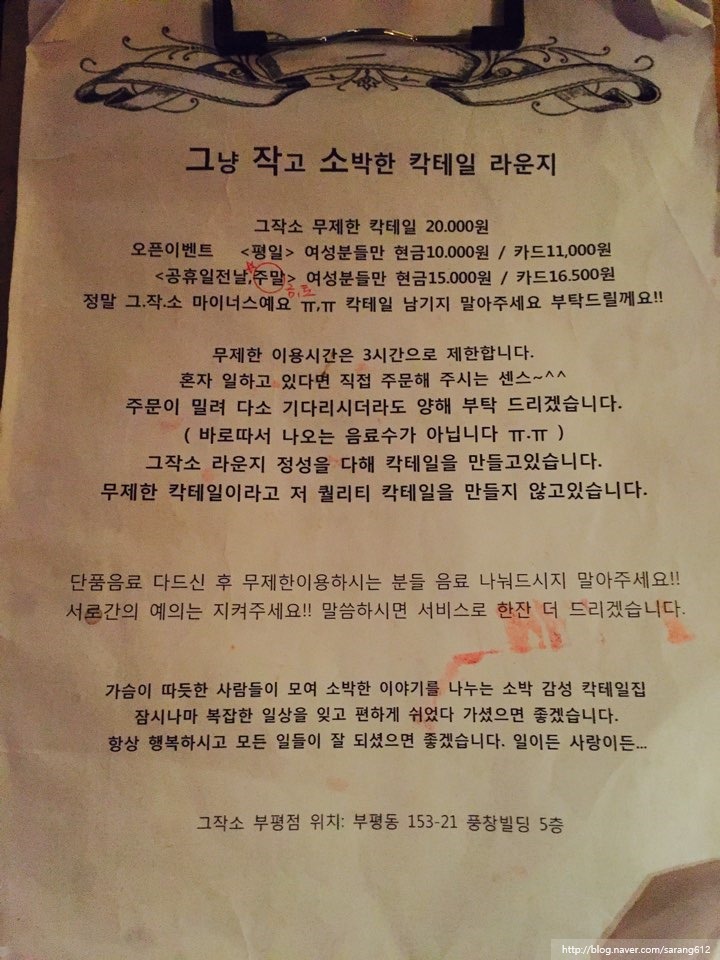 그냥 작고 소박한 칵테일 라운지
그작소 무제한 칵테일 20.000원
오픈이벤트 <평일> 여성분들만 현금10.000원 / 카드11,000원
<공휴일전날,주말> 여성분들만 현금15.000원 / 카드16.500원
금,토
정말 그.작.소 마이너스예요 ㅠ,ㅠ 칵테일 남기지 말아주세요 부탁드릴께요!!
무제한 이용시간은 3시간으로 제한합니다.
혼자 일하고 있다면 직접 주문해 주시는 센스~^^
주문이 밀려 다소 기다리시더라도 양해 부탁 드리겠습니다.
( 바로따서 나오는 음료수가 아닙니다 ㅠ.ㅠ )
그작소 라운지 정성을 다해 칵테일을 만들고있습니다.
무제한 칵테일이라고 저 퀄리티 칵테일을 만들지 않고있습니다.
단품음료 다드신 후 무제한이용하시는 분들 음료 나눠드시지 말아주세요!!
서로간의 예의는 지켜주세요!! 말씀하시면 서비스로 한잔 더 드리겠습니다.
가슴이 따듯한 사람들이 모여 소박한 이야기를 나누는 소박 감성 칵테일집
잠시나마 복잡한 일상을 잊고 편하게 쉬었다 가셨으면 좋겠습니다.
항상 행복하시고 모든 일들이 잘 되셨으면 좋겠습니다. 일이든 사랑이든...
그작소 부평점 위치: 부평동 153-21 풍창빌딩 5층
http://blog.naver.com/sarang612